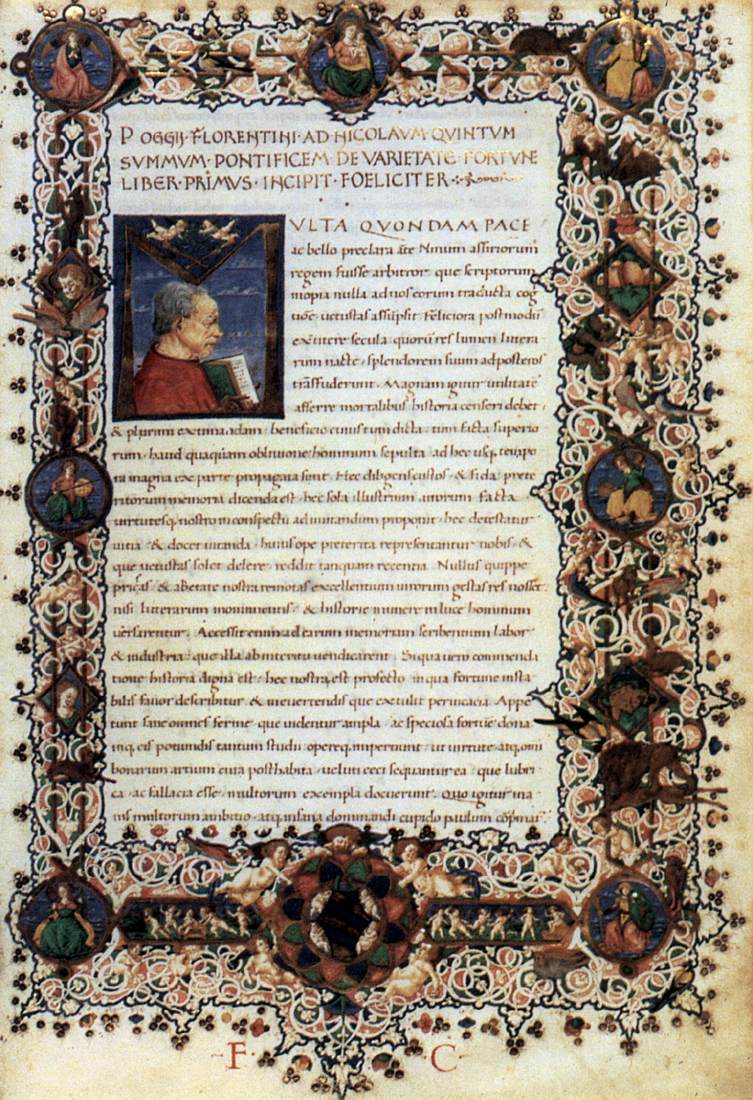 POGGII·FLORENTINI·AD·NICOLAVM·QVINTVM
SVMMVM·PONTIFICEM·DE VARIETATE·FORTVNE
LIBER·PRIMVS·INCIPIT·FOELICITER
VLTA QVONDAM PACE
ac bello preclara ãte Ninum assiriorum
regem fuisse arbitror que scriptorum
inopia nulla ad nos eorum traducta cog
uetustas Feliciora postmodũ
extitere secula quorũ res lumen littera
rum nacte splendorem suum ad posteros
trãsfuderunt. Magnam igitur utilitatẽ
afferre mortalibus historia censeri debet
& plurimi extimandam beneficio cuius tum dicta tum facta superio
rum haud quaquam obliuione hominum sepulta ad hec usq. tempo
ra magna ex parte propagata sint. Hec diligens custos & fida prete
ritorum memoria dicenda est hec sola illustrium uirorum facta
uirtutesq. nostro in conspectu ad imitandum proponit hec detestatur
uitia & docet uitanda huius ope preterita representantur nobis &
que uetustas solet delere reddit tanquam recentia. Nullus quippe
priscas & ab etate nostra remotas excellentium uirorum gestas res nosset
nisi litterarum monimentis & historie munere in luce hominum
uersarentur. Accessit enim ad earum memoriam scribentium labor
& industria que illa ab interitu uendicarent. Si qua uero commenda
tione historia digna est hec nostra est profecto in qua fortune insta
bilis fauor describitur & in euertendis que extulit peruicacia. Appe
tunt sane omnes ferme que uidentur ampla ac speciosa fortune dona
inq. eis potiundis tantum studii opereq. impertiunt ut uirtute atq. omni
bonarum artium cura posthabita ueluti ceci sequantur ea que lubri
ca ac fallacia esse multorum exempla docuerunt. Quo igitur ina
nis multorum ambitio atq. insana dominandi cupido paulum
F·C